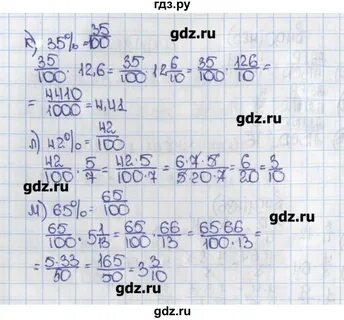 гдз.ру
к) 35% = 35/100
35/100 · 12,6 = 35/100 · 12 6/10 = 35/100 · 126/10 =
= 4410/1000 = 4,41
gdz.ru gdz.ru
л) 42% = 42/100
42/100 · 5/7 = 42·5/100·7 = 6·7·5/5·20·7 = 6/20 = 3/10
gdz.ru gdz.ru
м) 65% = 65/100
65/100 · 5 1/13 = 65/100 · 66/13 = 65·66/100·13 =
gdz.ru gdz.ru
= 5·33/50 = 165/50 = 3 3/10
gdz.ru